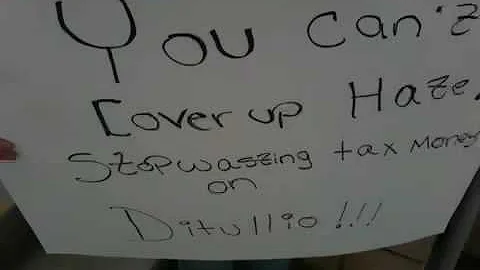 You can't
Cover up Hate.
Stop wasting tax money
on
Ditullio!!!